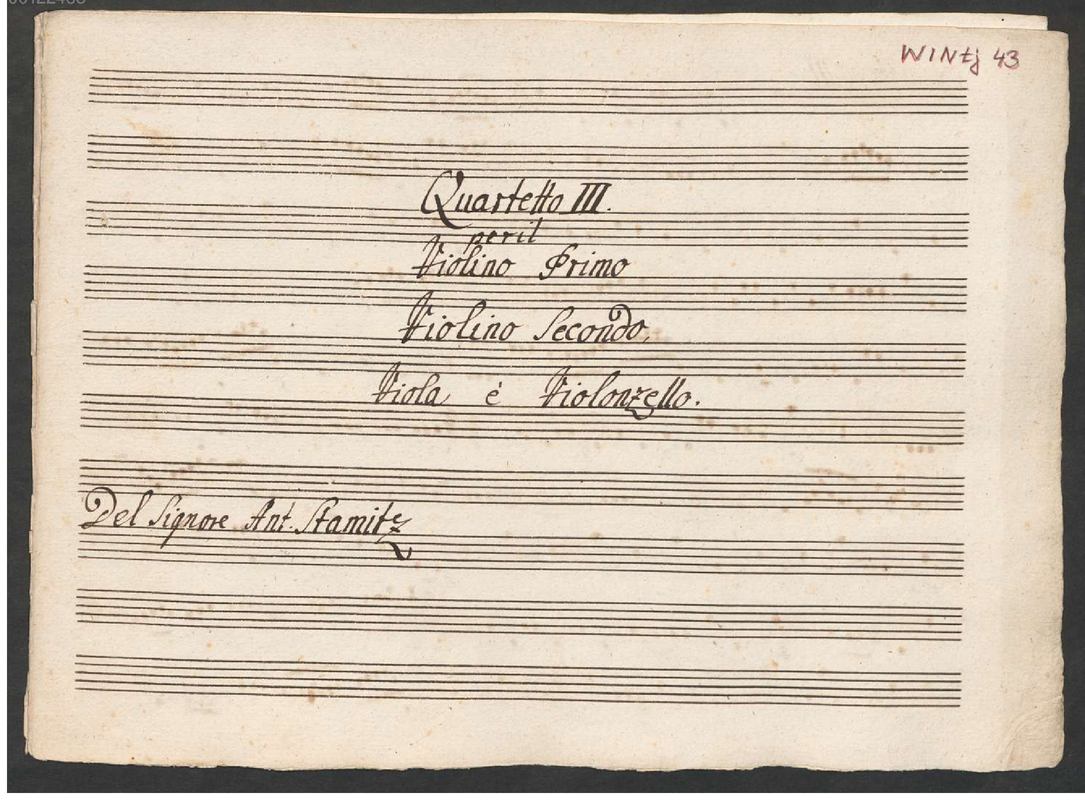 WINtj 43
Quartetto III.
per il
Violino Primo
Violino Secondo,
Viola è Violonzello.
Del Signore Ant. Stamitz